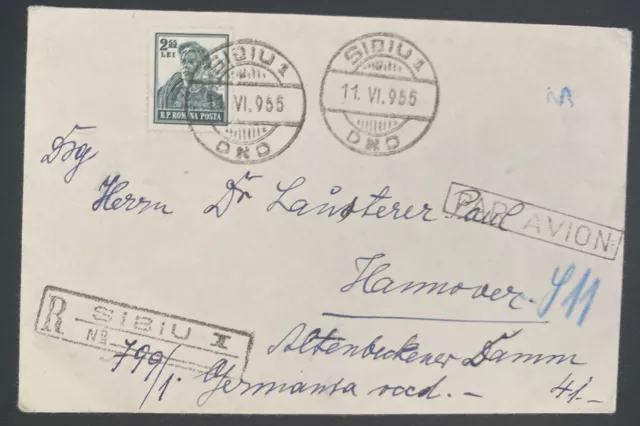 2.55
LEI
R.P. ROMINA POSTA
SIBIU 1
11. VI. 955
DND
SIBIU 1
11. VI. 955
DND
Herrn Dr Lausterer Paul
PAR AVION
Hannover
911
R SIBIU 1
No
799/1.
Altenbeckener Damm
Germania occd. - 41.-